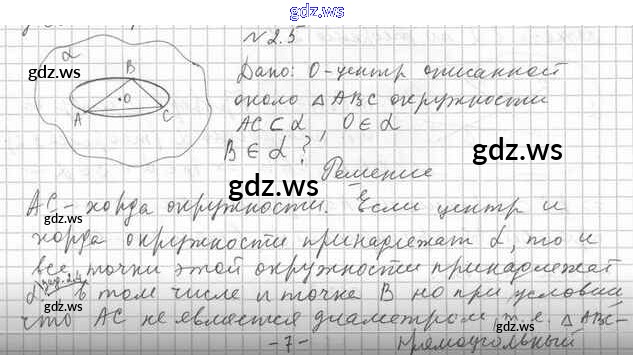 gdz.ws
№ 2.5
α
gdz.ws
B
Дано: O-центр описанной
O
около △ABC окружности
A
C
AC ⊂ α, O ∈ α
B ∈ α ?
gdz.ws
Решение
gdz.ws
AC - хорда окружности. Если центр и
gdz.ws
хорда окружности принадлежат α, то и
все точки этой окружности принадлежат
gdz.ws
α в том числе и точка B но при условии
что AC не является диаметром т.е. △ABC-
-7-
прямоугольный